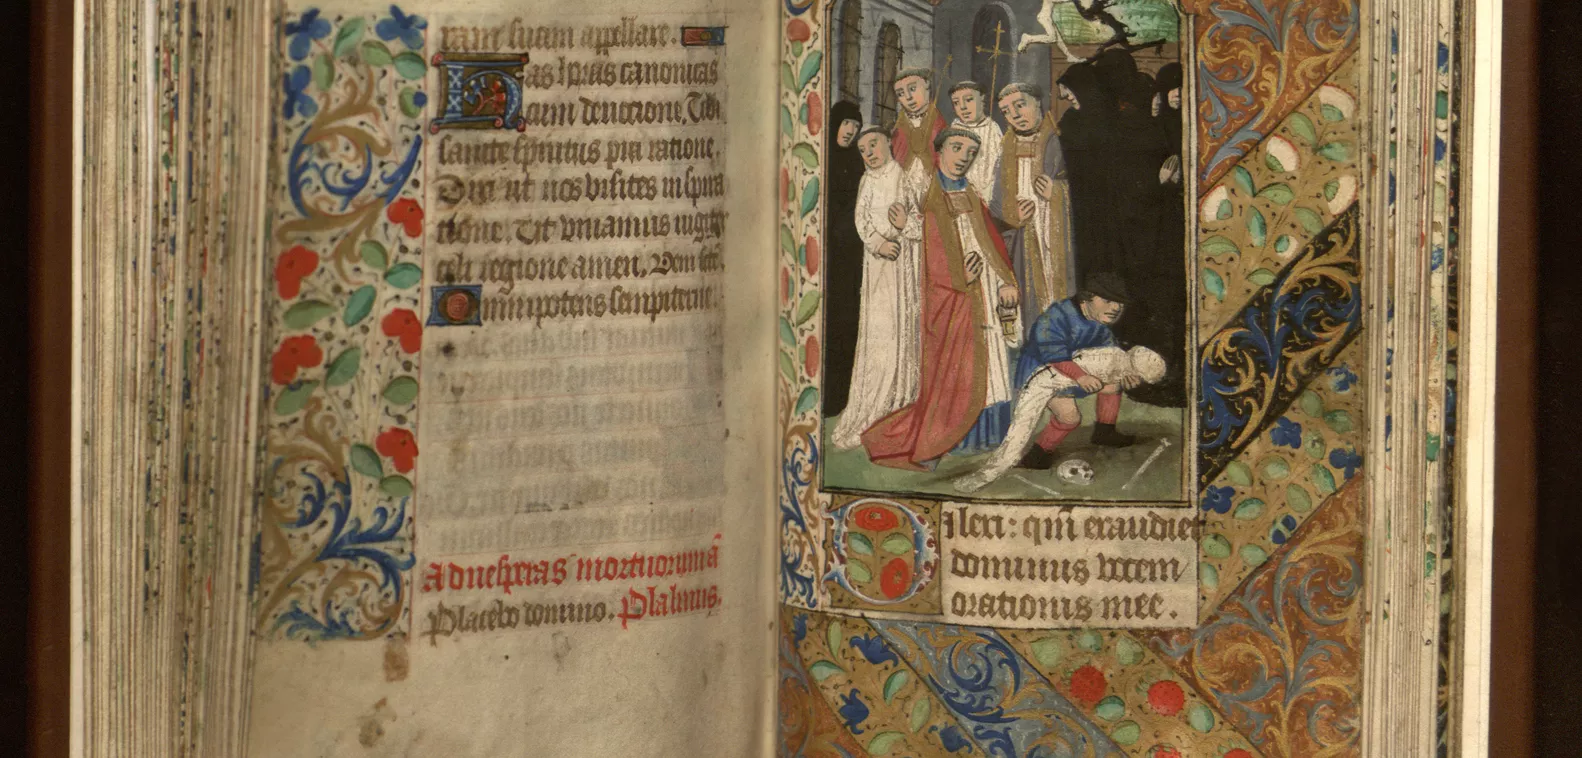 ram sicum appellare.
Has horas canonicas
cum deuocione, Tibi
sancte spiritus pia ratione.
Dixi ut nos visites inspira
tione. Et viuamus iugiter
celi regione amen. Dom
Omnipotens sempiterne.
Ad vesperas mortuorum a
Placebo domino. Psalmus.
Dilexi: qm exaudiet
dominus vocem
orationis mee.